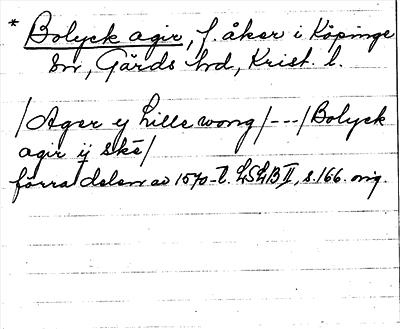 * Bolyck agir, f. åker i Köpinge
sn, Gärds hd, Krist. l.
/Ager ÿ Lille wong/---/Bolyck
agir ÿ skē/
förra delen av 1570-t. LSLB II, s. 166. orig.